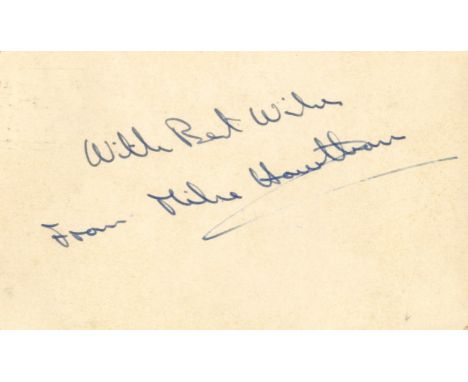 With Best Wishes
From Mike Hawthorn